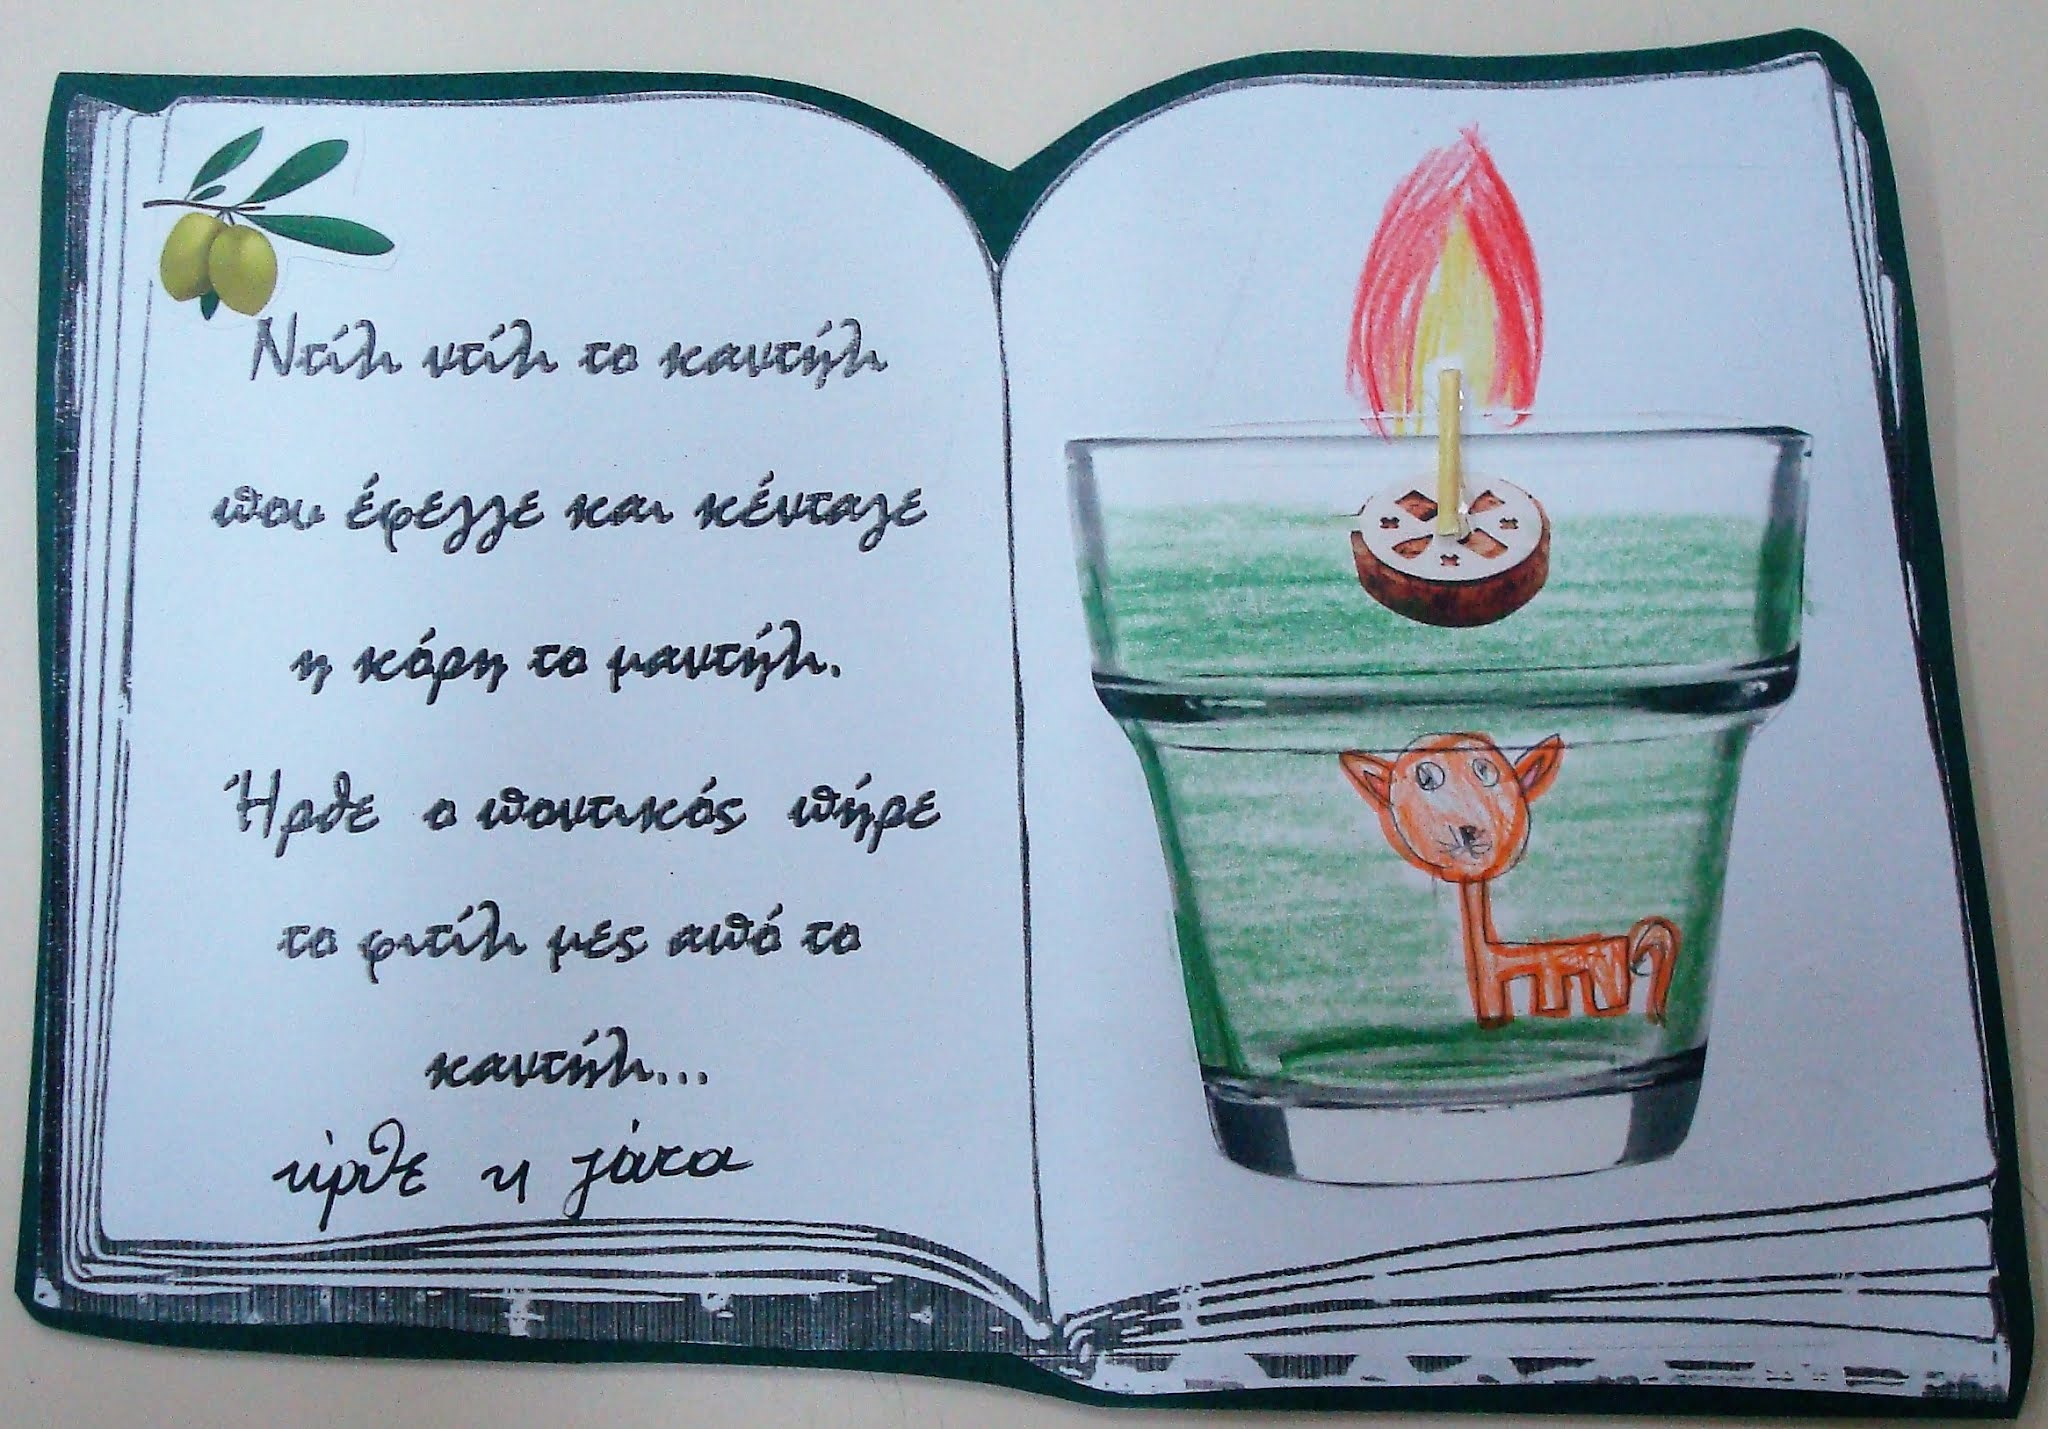 Ντίλι ντίλι το καντήλι
που έφεγγε και κένταγε
η κόρη το μαντήλι.
Ήρθε ο ποντικός πήρε
το φιτίλι μες από το
καντήλι...
ήρθε η γάτα